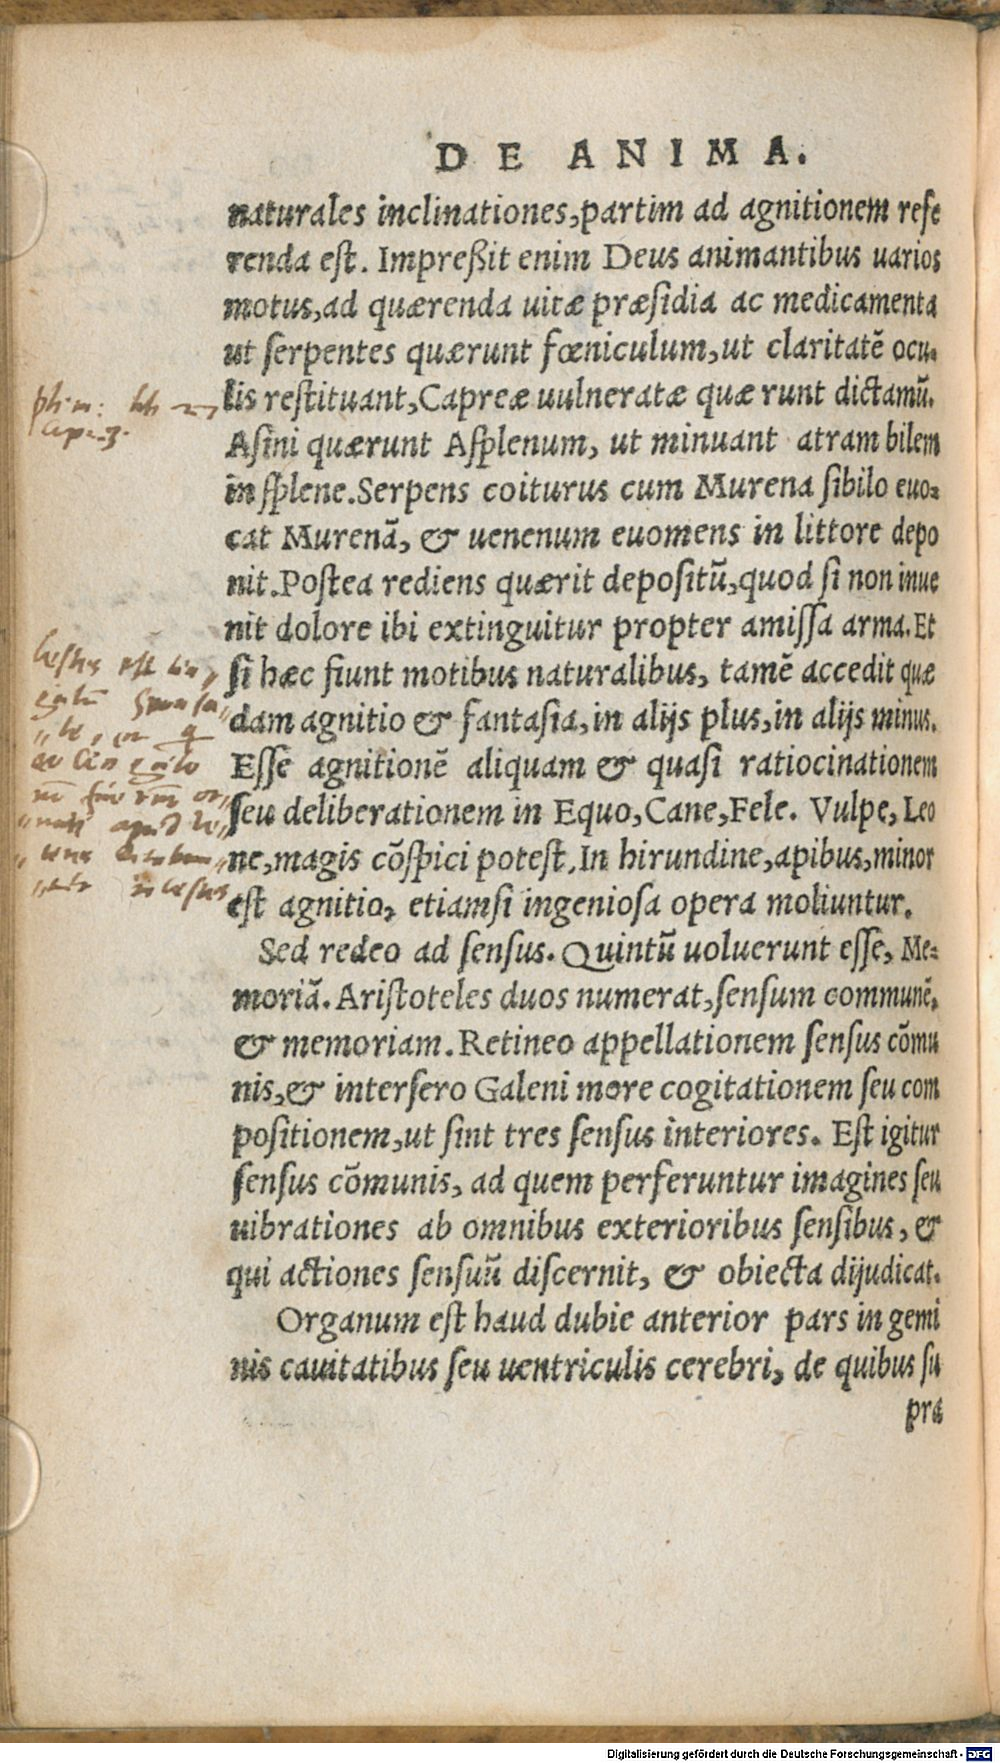 DE ANIMA.
naturales inclinationes, partim ad agnitionem refe
renda est. Impreßit enim Deus animantibus uarios
motus, ad quærenda uitæ præsidia ac medicamenta
ut serpentes quærunt fœniculum, ut claritatē ocu-
lis restituant, Capreæ uulneratæ quæ runt dictamū.
Asini quærunt Asplenum, ut minuant atram bilem
in splene. Serpens coiturus cum Murena sibilo euo-
cat Murenā, & uenenum euomens in littore depo
nit. Postea rediens quærit depositū, quod si non inue
nit dolore ibi extinguitur propter amissa arma. Et
si hæc fiunt motibus naturalibus, tamē accedit quæ
dam agnitio & fantasia, in alijs plus, in alijs minus.
Esse agnitionē aliquam & quasi ratiocinationem
seu deliberationem in Equo, Cane, Fele. Vulpe, Leo
ne, magis cōspici potest. In hirundine, apibus, minor
est agnitio, etiamsi ingeniosa opera moliuntur.
Sed redeo ad sensus. Quintū uoluerunt esse, Me-
moriā. Aristoteles duos numerat, sensum communē,
& memoriam. Retineo appellationem sensus cōmu
nis, & intersero Galeni more cogitationem seu com
positionem, ut sint tres sensus interiores. Est igitur
sensus cōmunis, ad quem perferuntur imagines seu
uibrationes ab omnibus exterioribus sensibus, &
qui actiones sensuū discernit, & obiecta dijudicat.
Organum est haud dubie anterior pars in gemi
nis cauitatibus seu uentriculis cerebri, de quibus su
pra
Digitalisierung gefördert durch die Deutsche Forschungsgemeinschaft - DFG